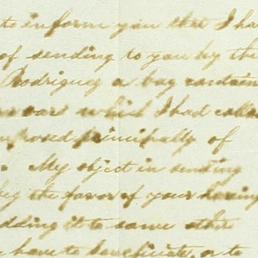 to inform you that I ha
of sending to you by the
Rodriguez a bag contain
which I had colle
mposed principally of
My object in sending
beg the favor of your having
dding it to some other
have to beneficiate, or to